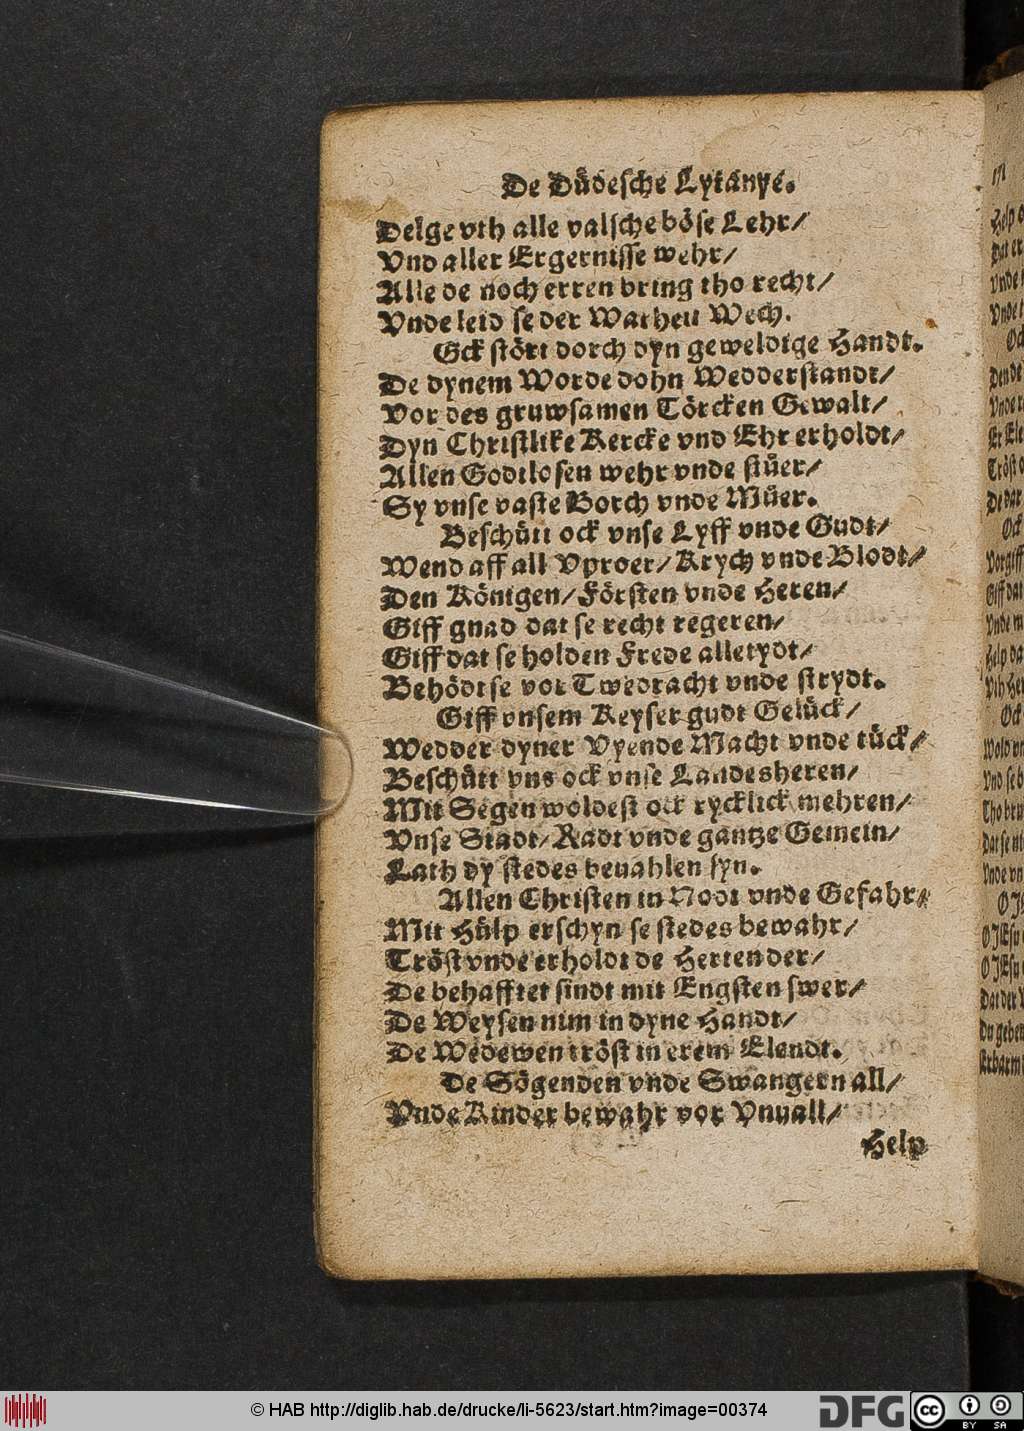 De Düdesche Lytanye.
Delge vth alle valsche böse Lehr/
Vnd aller Ergernisse wehr/
Alle de noch erren bring tho recht/
Vnde leid se der Warheit Wech.
Ock stört dorch dyn geweldige Handt.
De dynem Worde dohn Wedderstandt/
Vor des gruwsamen Törcken Gewalt/
Dyn Christlike Kercke vnd Ehr erholdt/
Allen Godtlosen wehr vnde stüer/
Sy vnse vaste Borch vnde Müer.
Beschütt ock vnse Lyff vnde Gudt/
Wend aff all Vproer/ Krych vnde Blodt/
Den Königen/ Försten vnde Heren/
Giff gnad dat se recht regeren/
Giff dat se holden Frede alletydt/
Behödt se vor Twedracht vnde strydt.
Giff vnsem Keyser gudt Gelück/
Wedder dyner Vyende Macht vnde tück/
Beschütt vns ock vnse Landesheren/
Mit Segen woldest ock rycklick mehren/
Vnse Stadt/ Radt vnde gantze Gemein/
Lath dy stedes beuahlen syn.
Allen Christen in Nodt vnde Gefahr/
Mit Hülp erschyn se stedes bewahr/
Tröst vnde erholdt de Herten der/
De behafftet sindt mit Engsten swer/
De Weysen nim in dyne Handt/
De Wedewen tröst in erem Elendt.
De Sögenden vnde Swangern all/
Vnde Kinder bewahr vor Vnuall/
Help
© HAB http://diglib.hab.de/drucke/li-5623/start.htm?image=00374
DFG
cc
BY SA